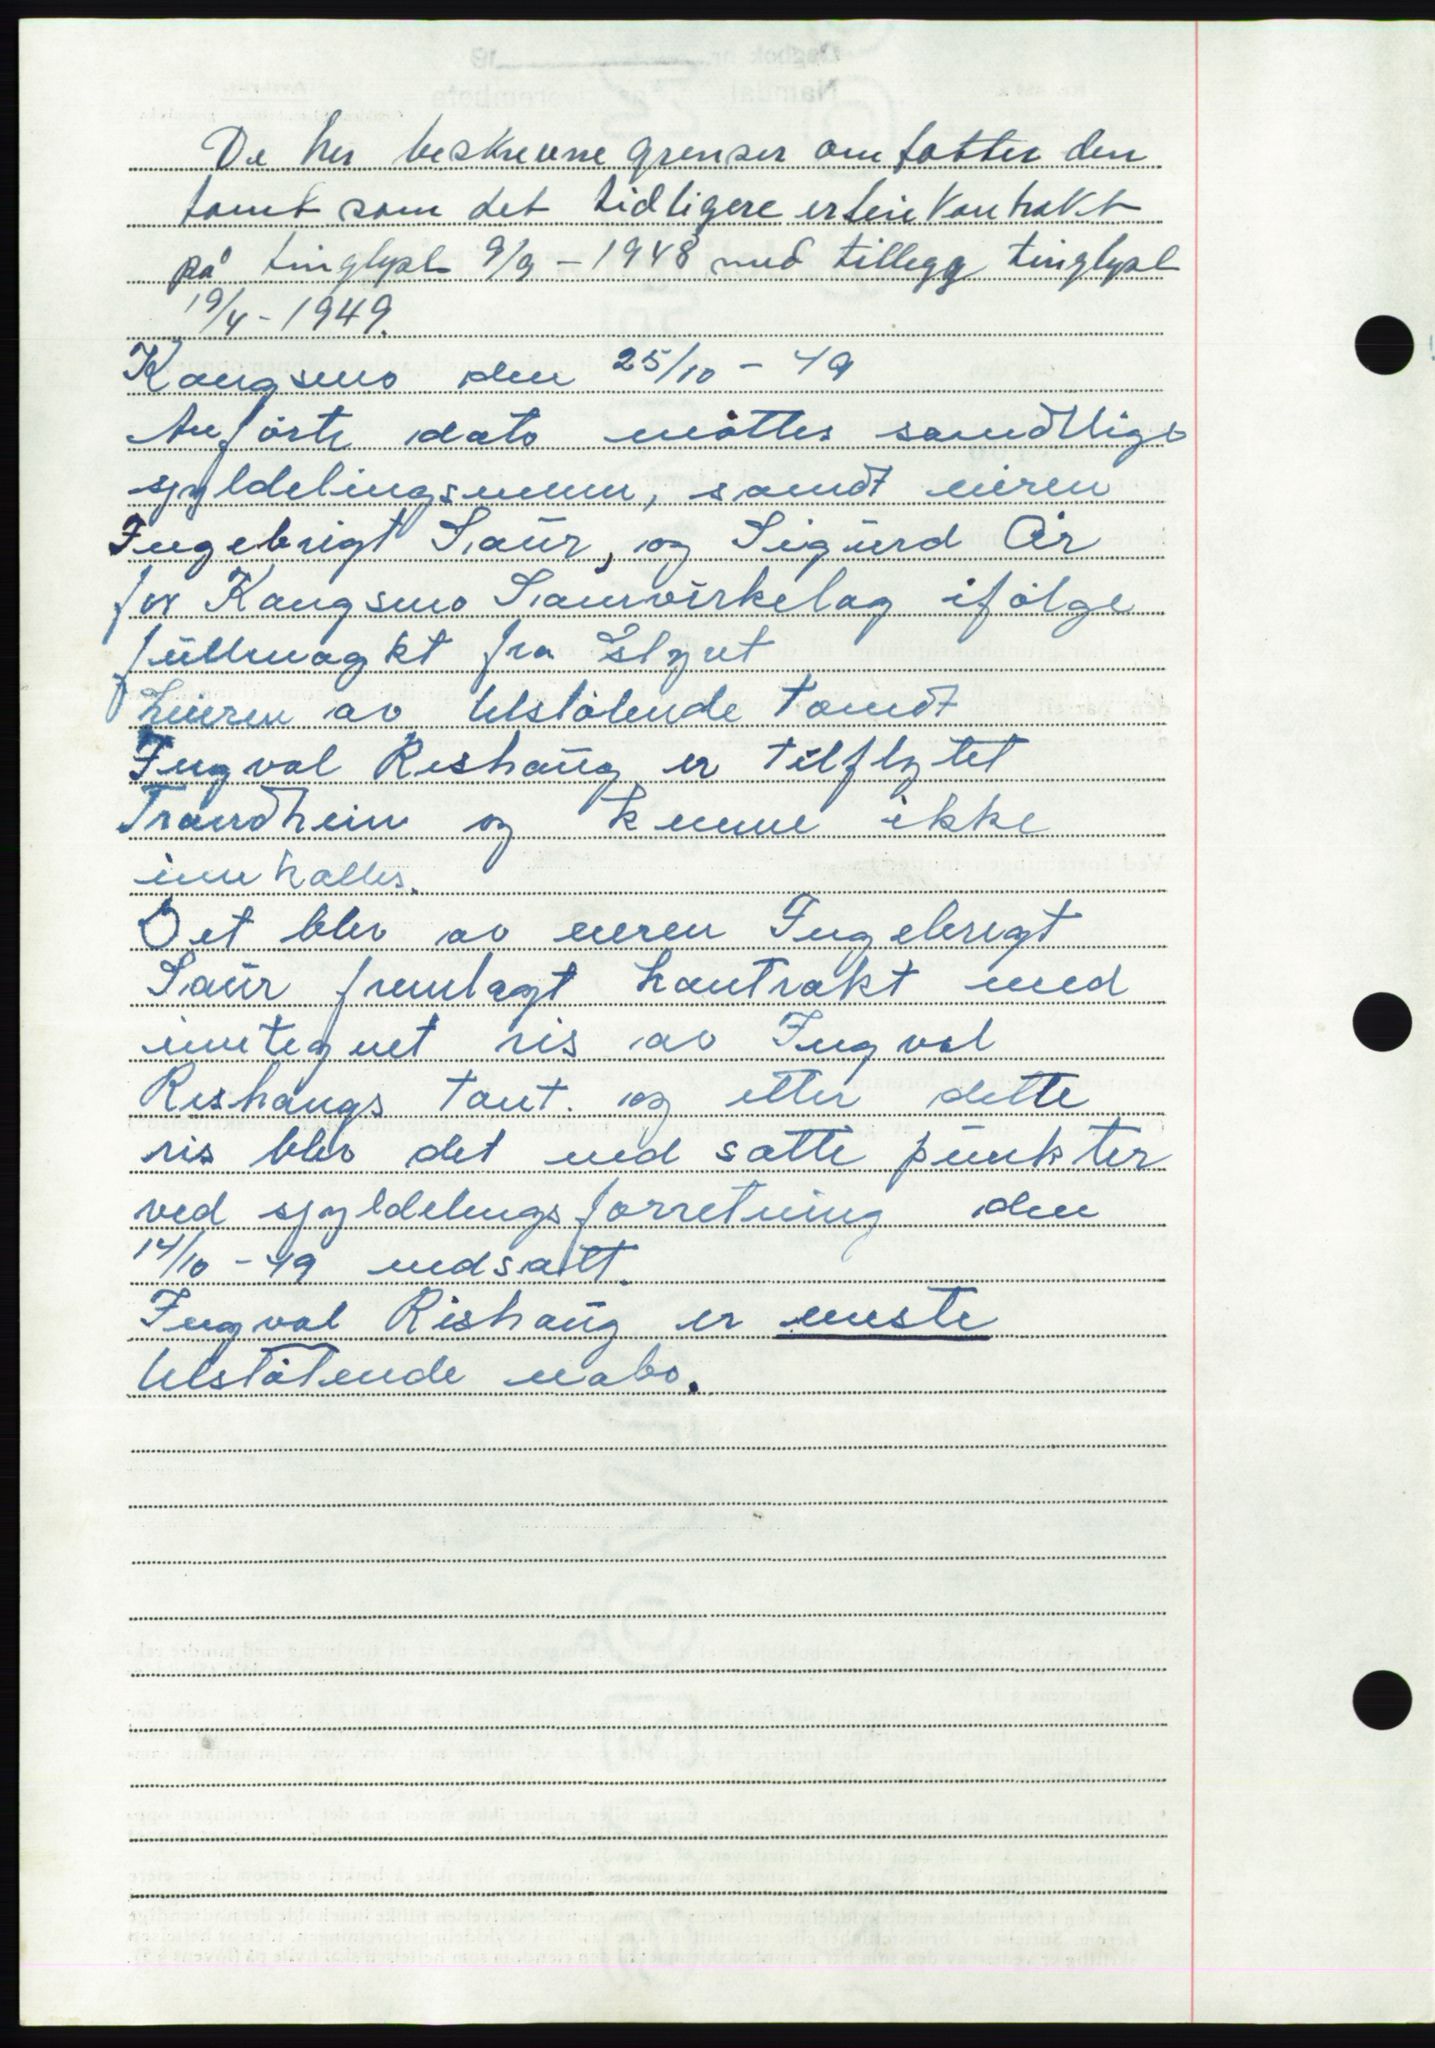 De her beskrevne grenser omfatter den
tomt som det tidligere er leiekontrakt
på tinglyst 9/9 - 1948 med tillegg tinglyst
19/4 - 1949.
Kongsmo den 25/10 - 49
Anførte dato møttes samdtlige
syldelingsmenn, samdt eieren
Ingebrigt Saur, og Sigurd Air
for Kongsmo Samvirkelag ifølge
fullmagkt fra Styret
Eieren av tilstøtende tomdt
Ingval Reshaug er tilflytet
Trondheim og kunne ikke
innkalles.
Det blev av eieren Ingebrigt
Saur fremlagt kontrakt med
inntegnet ris av Ingval
Reshaugs tomt. og etter dette
ris blev det ned satte punkter
ved syldelingsforretning den
14/10 - 49 nedsatt.
Ingval Rishaug er eneste
tilstøtende nabo.